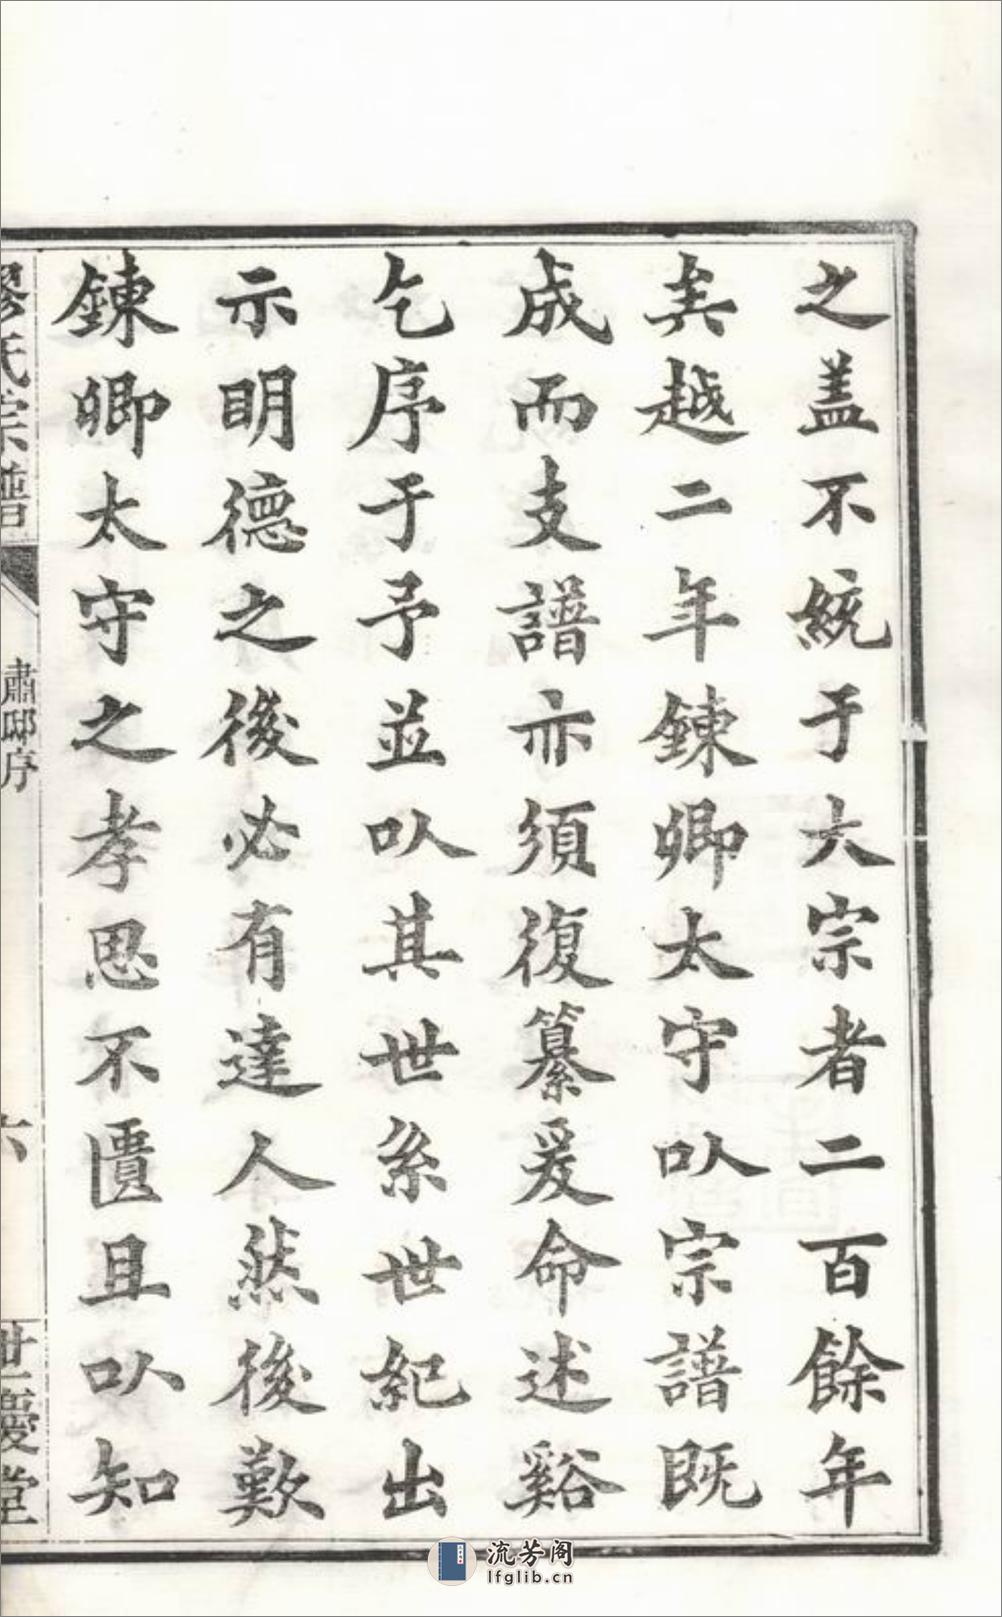 之盖不統于大宗者二百餘年
矣越二年鍊卿太守以宗譜既
成而支譜亦須復纂爰命述谿
乞序于予並以其世系世紀出
示明德之後必有達人然後歎
鍊卿太守之孝思不匱且以知
繆氏宗譜
肅邸序
六
世慶堂
流芳阁
lfglib.cn